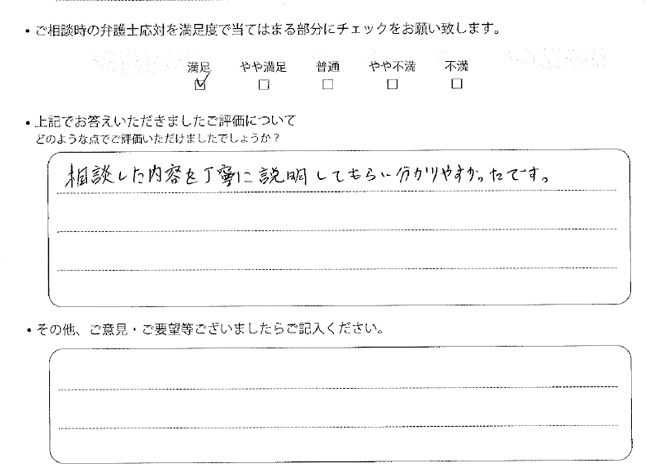 ・ご相談時の弁護士応対を満足度で当てはまる部分にチェックをお願い致します。
満足 やや満足 普通 やや不満 不満
☑ □ □ □ □
・上記でお答えいただきましたご評価について
どのような点でご評価いただけましたでしょうか？
相談した内容を丁寧に説明してもらい分かりやすかったです。
・その他、ご意見・ご要望等ございましたらご記入ください。